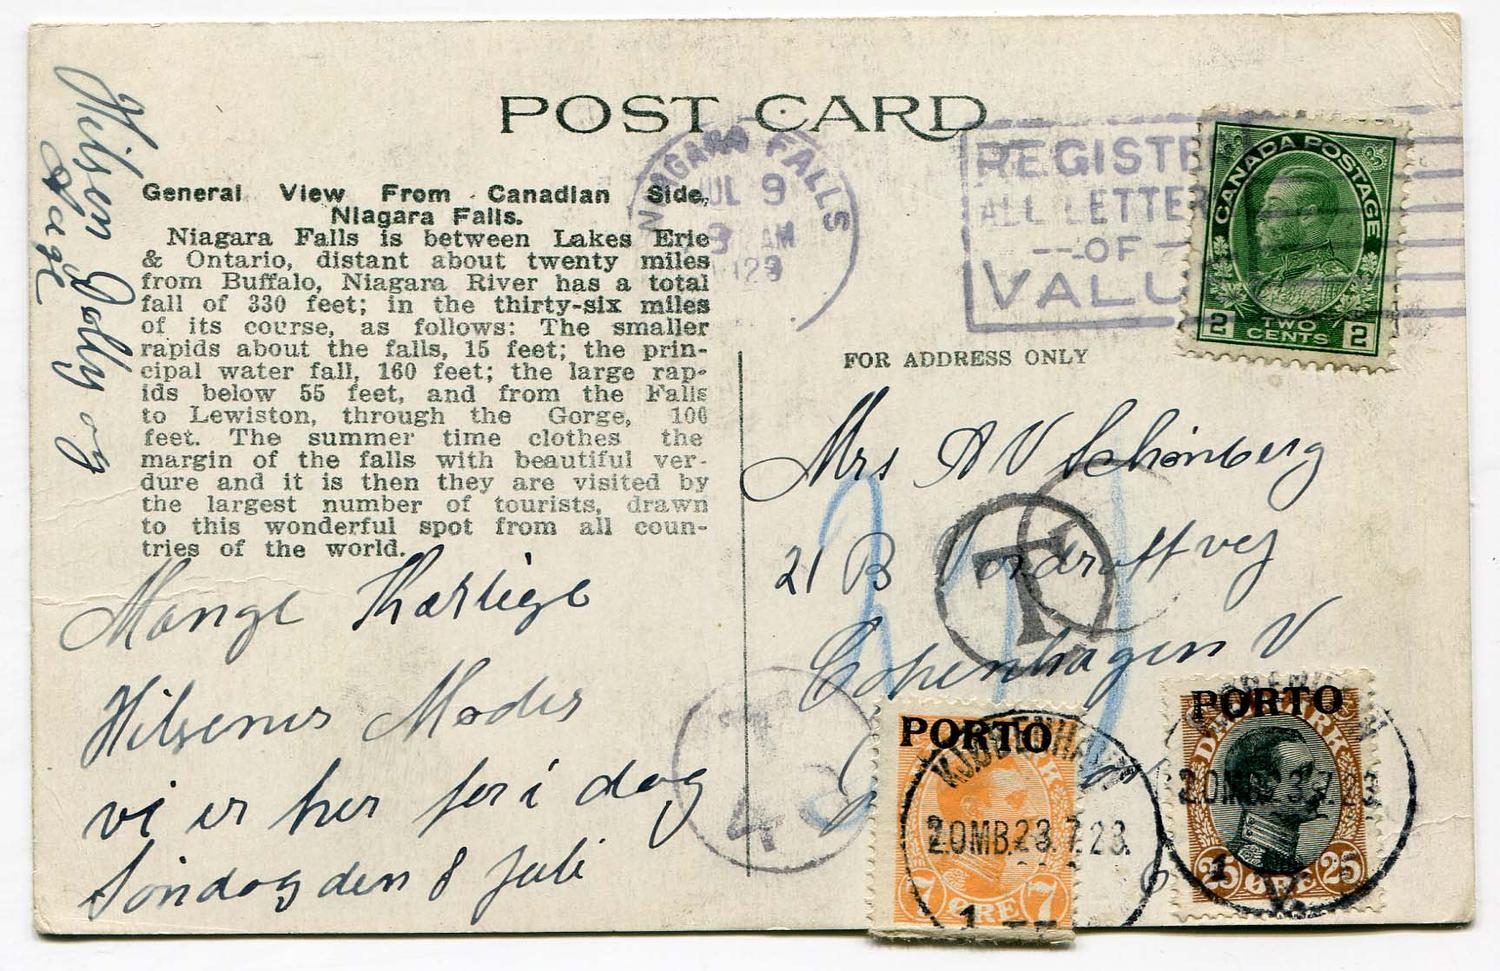 POST CARD
General View From Canadian Side,
Niagara Falls.
Niagara Falls is between Lakes Erie
& Ontario, distant about twenty miles
from Buffalo, Niagara River has a total
fall of 330 feet; in the thirty-six miles
of its course, as follows: The smaller
rapids about the falls, 15 feet; the prin-
cipal water fall, 160 feet; the large rap-
ids below 55 feet, and from the Falls
to Lewiston, through the Gorge, 100
feet. The summer time clothes the
margin of the falls with beautiful ver-
dure and it is then they are visited by
the largest number of tourists, drawn
to this wonderful spot from all coun-
tries of the world.
Mange Kærlige
Hilsener Moder
vi er her for i dag
Søndag den 8 Juli
Hilsen Dolly og
Aage
NIAGARA FALLS
JUL 9
9 AM
REGISTER
ALL LETTERS
OF
VALU
CANADA POSTAGE
2 TWO CENTS 2
FOR ADDRESS ONLY
Mrs A V Schönberg
21 B
Copenhagen V
T
T
4
PORTO
KJØBENHAVN
2.OMB.23.7.23.
1
7 ØRE 7
PORTO
DANMARK
2.OMB.23.7.23
1
25 ØRE 25